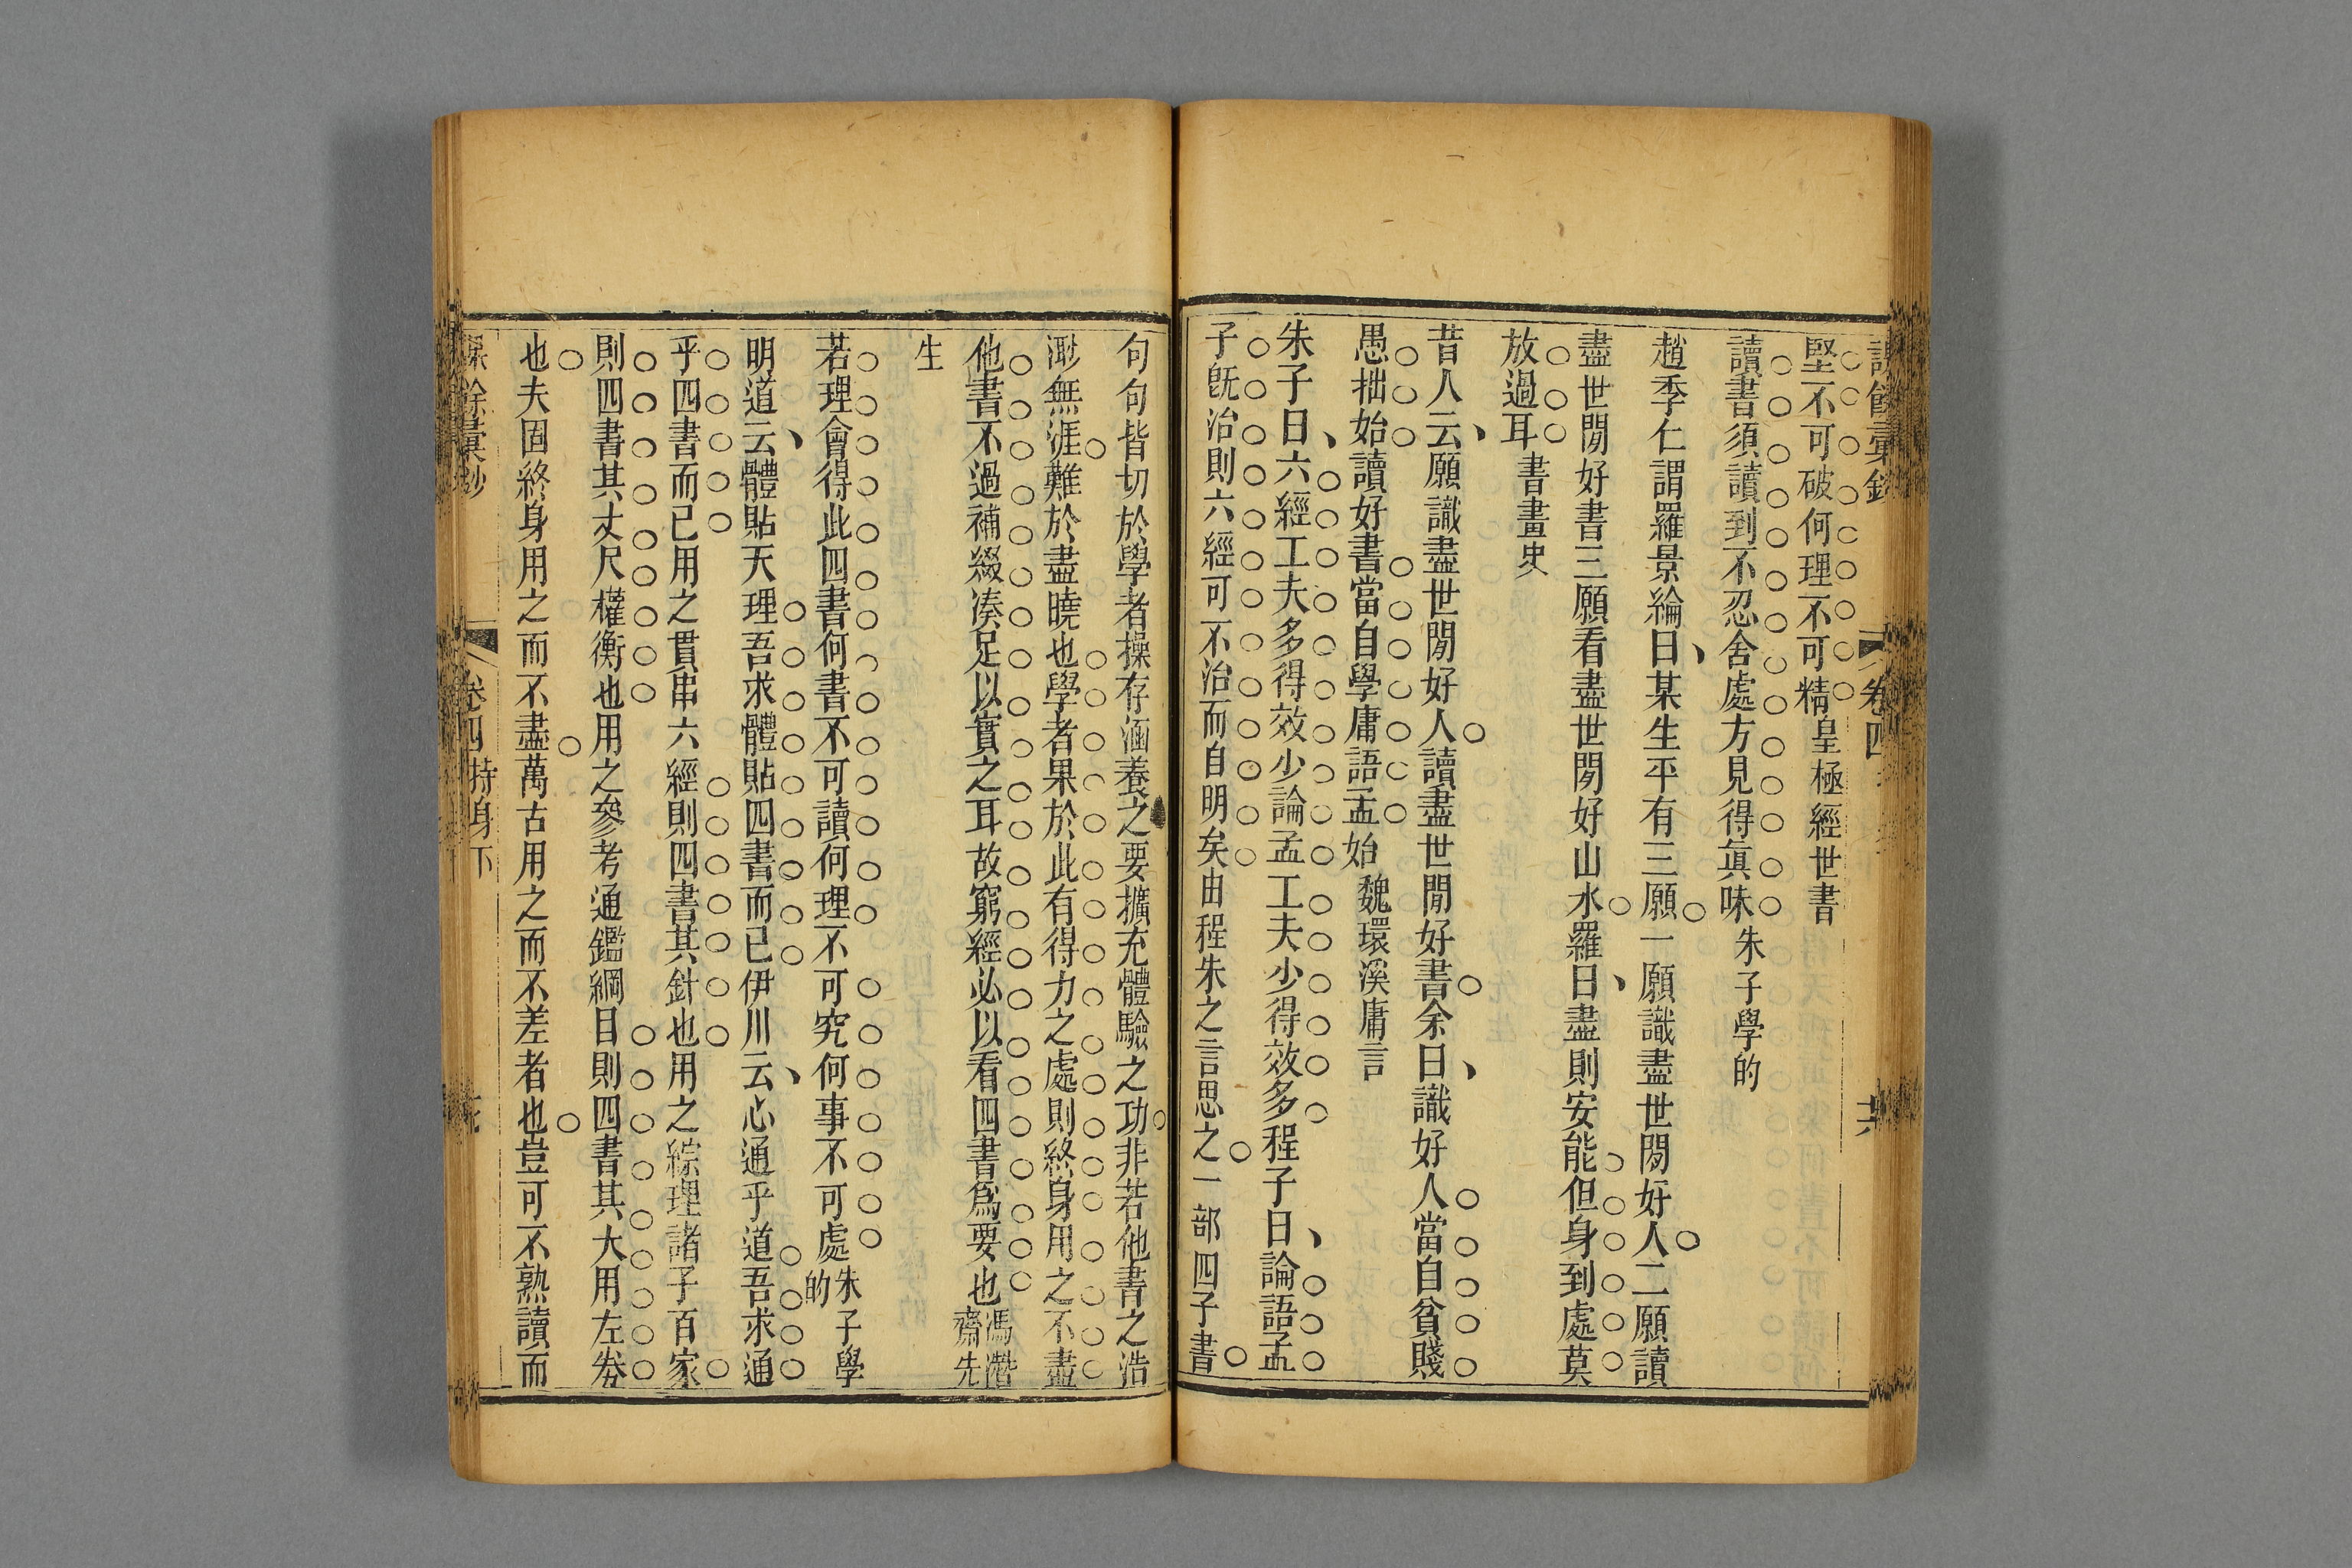 課餘彙鈔 卷四
堅不可破何理不可精皇極經世書
讀書須讀到不忍舍處方見得眞味朱子學的
趙季仁謂羅景綸曰某生平有三願一願識盡世閒好人二願讀
盡世閒好書三願看盡世閒好山水羅曰盡則安能但身到處莫
放過耳書畫史
昔人云願識盡世閒好人讀盡世閒好書余曰識好人當自貧賤
愚拙始讀好書當自學庸語孟始魏環溪庸言
朱子曰六經工夫多得效少論孟工夫少得效多程子曰論語孟
子旣治則六經可不治而自明矣由程朱之言思之一部四子書
句句皆切於學者操存涵養之要擴充體驗之功非若他書之浩
渺無涯難於盡曉也學者果於此有得力之處則終身用之不盡
他書不過補綴湊足以實之耳故窮經必以看四書爲要也馮潛齋先
生
若理會得此四書何書不可讀何理不可究何事不可處朱子學的
明道云體貼天理吾求體貼四書而已伊川云心通乎道吾求通
乎四書而已用之貫串六經則四書其針也用之綜理諸子百家
則四書其丈尺權衡也用之參考通鑑綱目則四書其大用左劵
也夫固終身用之而不盡萬古用之而不差者也豈可不熟讀而
課餘彙鈔 卷四 持身下